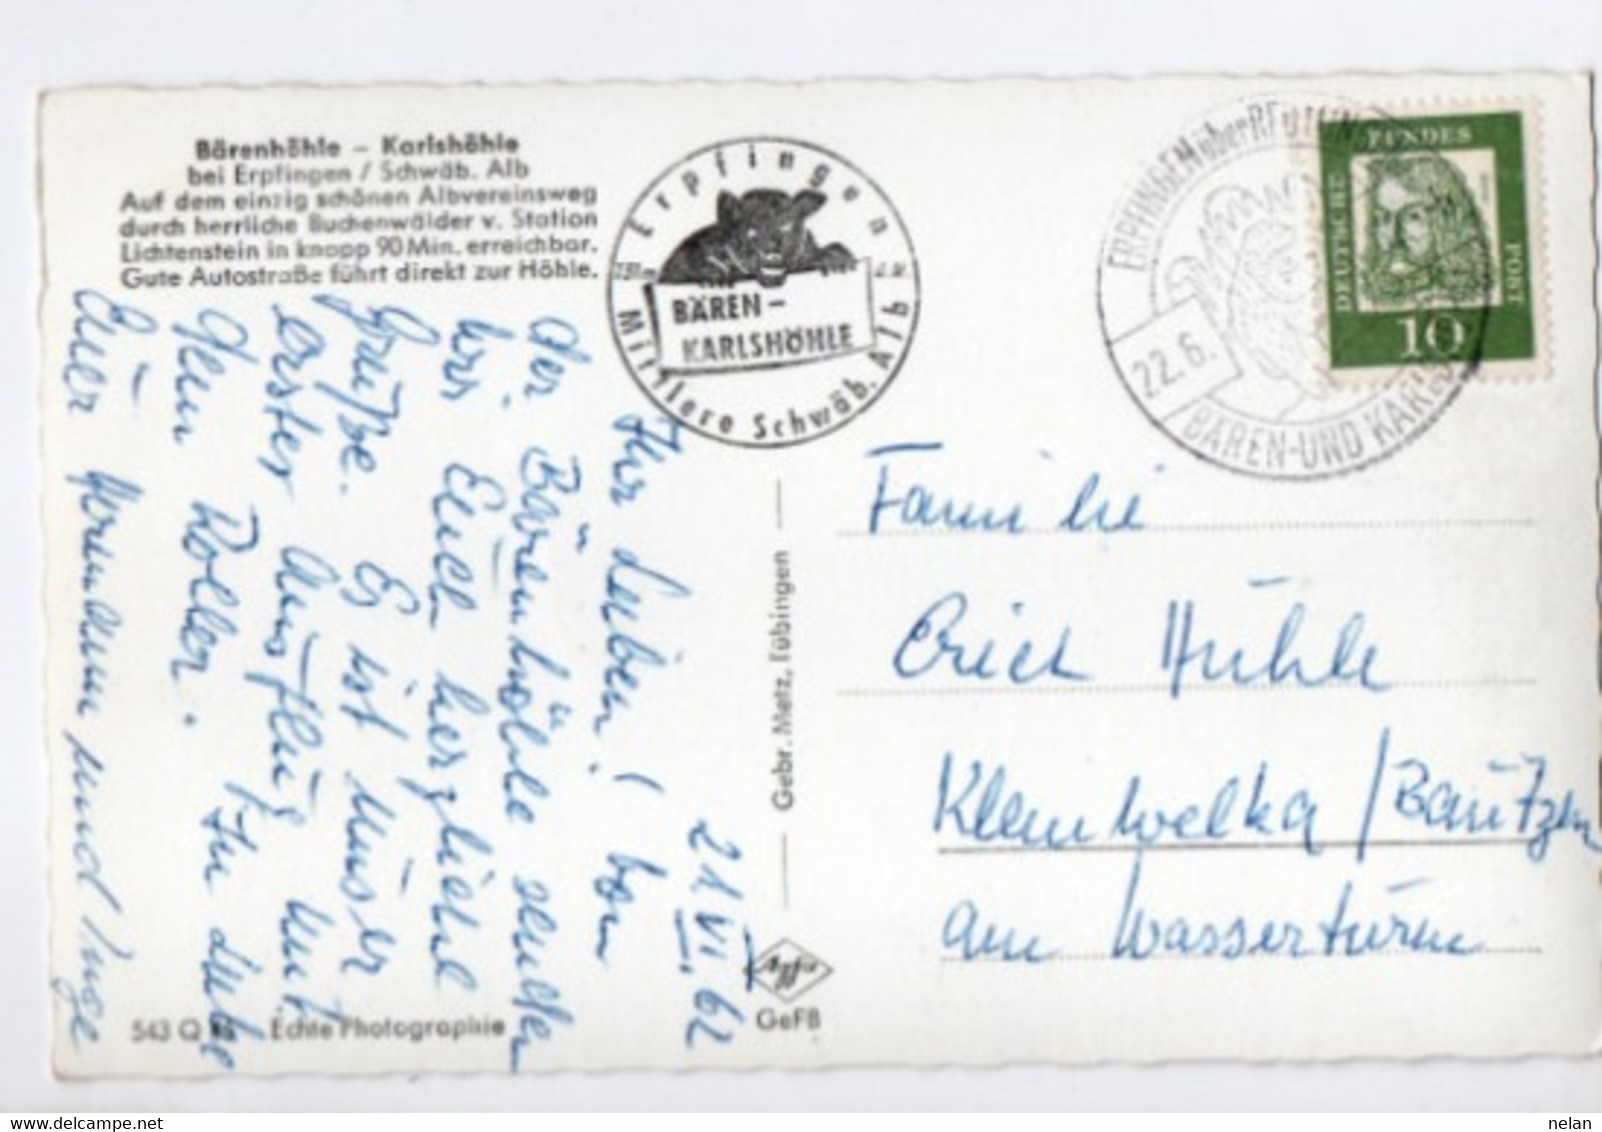 Bärenhöhle – Karlshöhle
bei Erpfingen / Schwäb. Alb
Auf dem einzig schönen Albvereinsweg
durch herrliche Buchenwälder v. Station
Lichtenstein in knapp 90 Min. erreichbar.
Gute Autostraße führt direkt zur Höhle.
Erpfingen
BÄREN–
KARLSHÖHLE
Mittlere Schwäb. Alb
ERPFINGEN über
22.6.
BÄREN-UND
DEUTSCHE
BUNDES
POST
10
21.VI.62
Ihr Lieben! Von
der Bärenhöhle senden
wir Euch herzliche
Grüße. Es ist unser
erster Ausflug mit
dem Roller. In Liebe
Euer Hermann und Inge
Familie
Erich Hühle
Kleinwelka / Bautzen
am Wasserturm
Gebr. Metz, Tübingen
GeFB
543 Q Echte Photographie
nelan